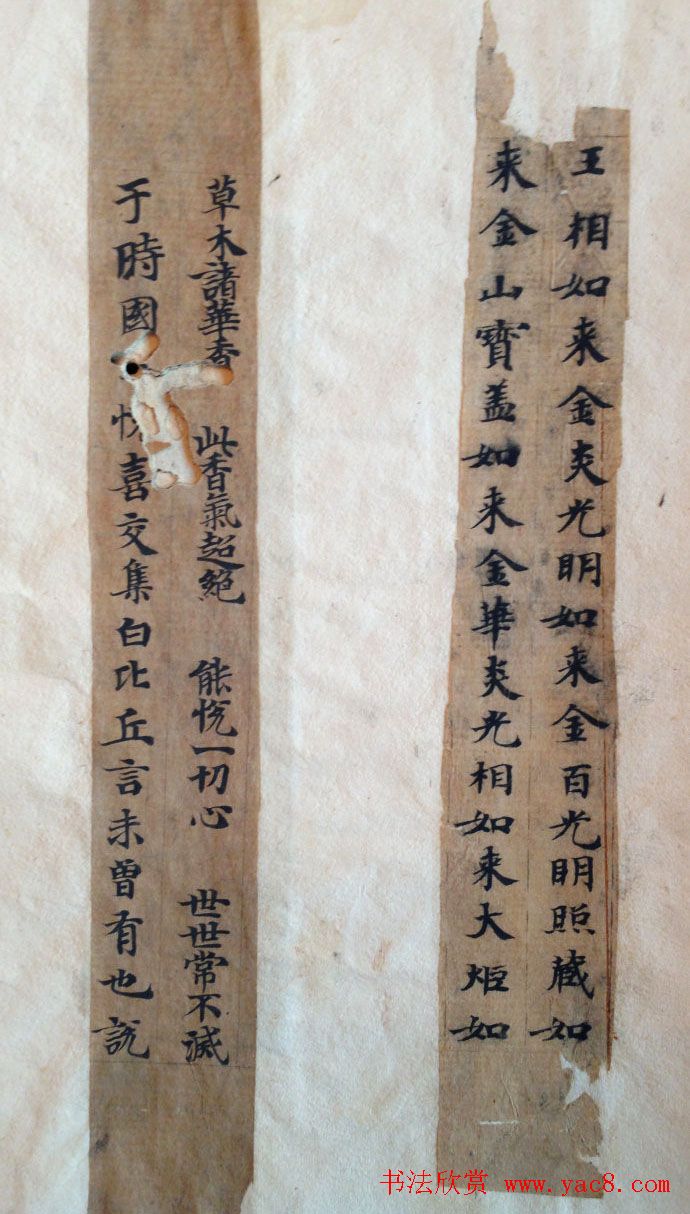 王相如来金炎光明如来金百光明照藏如
来金山寳盖如来金華炎光相如来大炬如
草木諸華香 此香氣超絕 能悅一切心 世世常不滅
于時國 悅喜交集白比丘言未曾有也說
书法欣赏 www.yac8.com